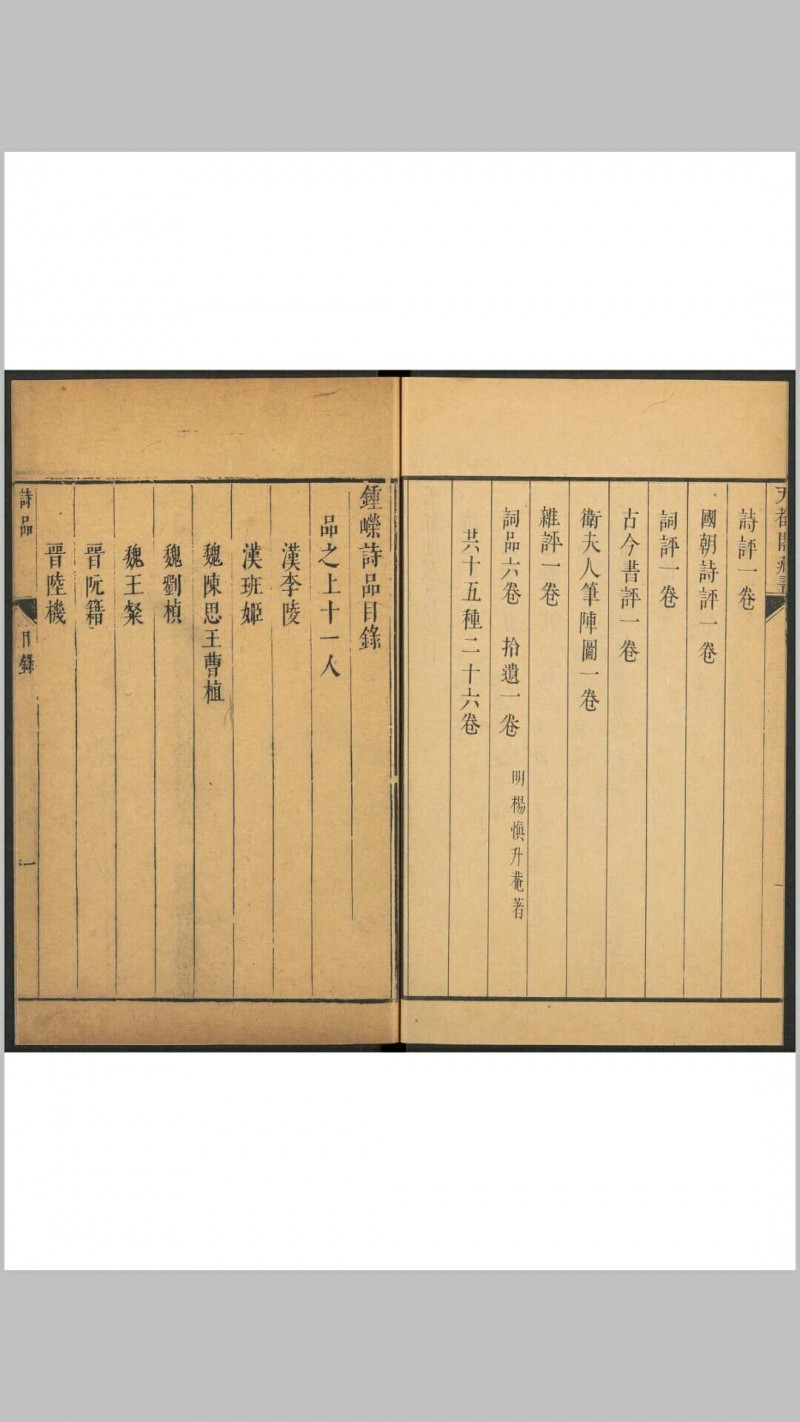 天都閣藏書
詩評一卷
國朝詩評一卷
詞評一卷
古今書評一卷
衛夫人筆陣圖一卷
雜評一卷
詞品六卷　拾遺一卷　明楊慎升菴著
共十五種二十六卷
鍾嶸詩品目錄
品之上十一人
漢李陵
漢班姬
魏陳思王曹植
魏劉楨
魏王粲
晉阮籍
晉陸機
詩品　目錄　一